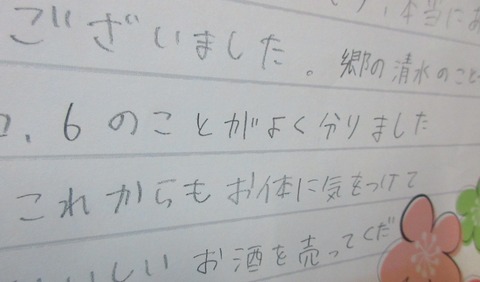 、本当にあ
ございました。郷の清水のこと
、6のことがよく分りました
これからもお体に気をつけて
いしいお酒を売ってくだ